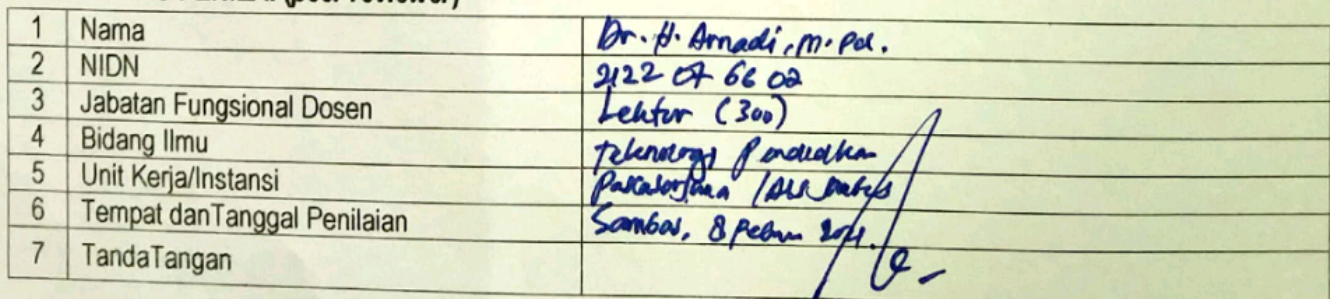 (peer reviewer)
1 Nama Dr. H. Arnadi, M.Pd.
2 NIDN 2122 07 66 02
3 Jabatan Fungsional Dosen Lektor (300)
4 Bidang Ilmu Teknologi Pendidikan
5 Unit Kerja/Instansi Pascasarjana IAIS Sambas
6 Tempat danTanggal Penilaian Sambas, 8
7 TandaTangan